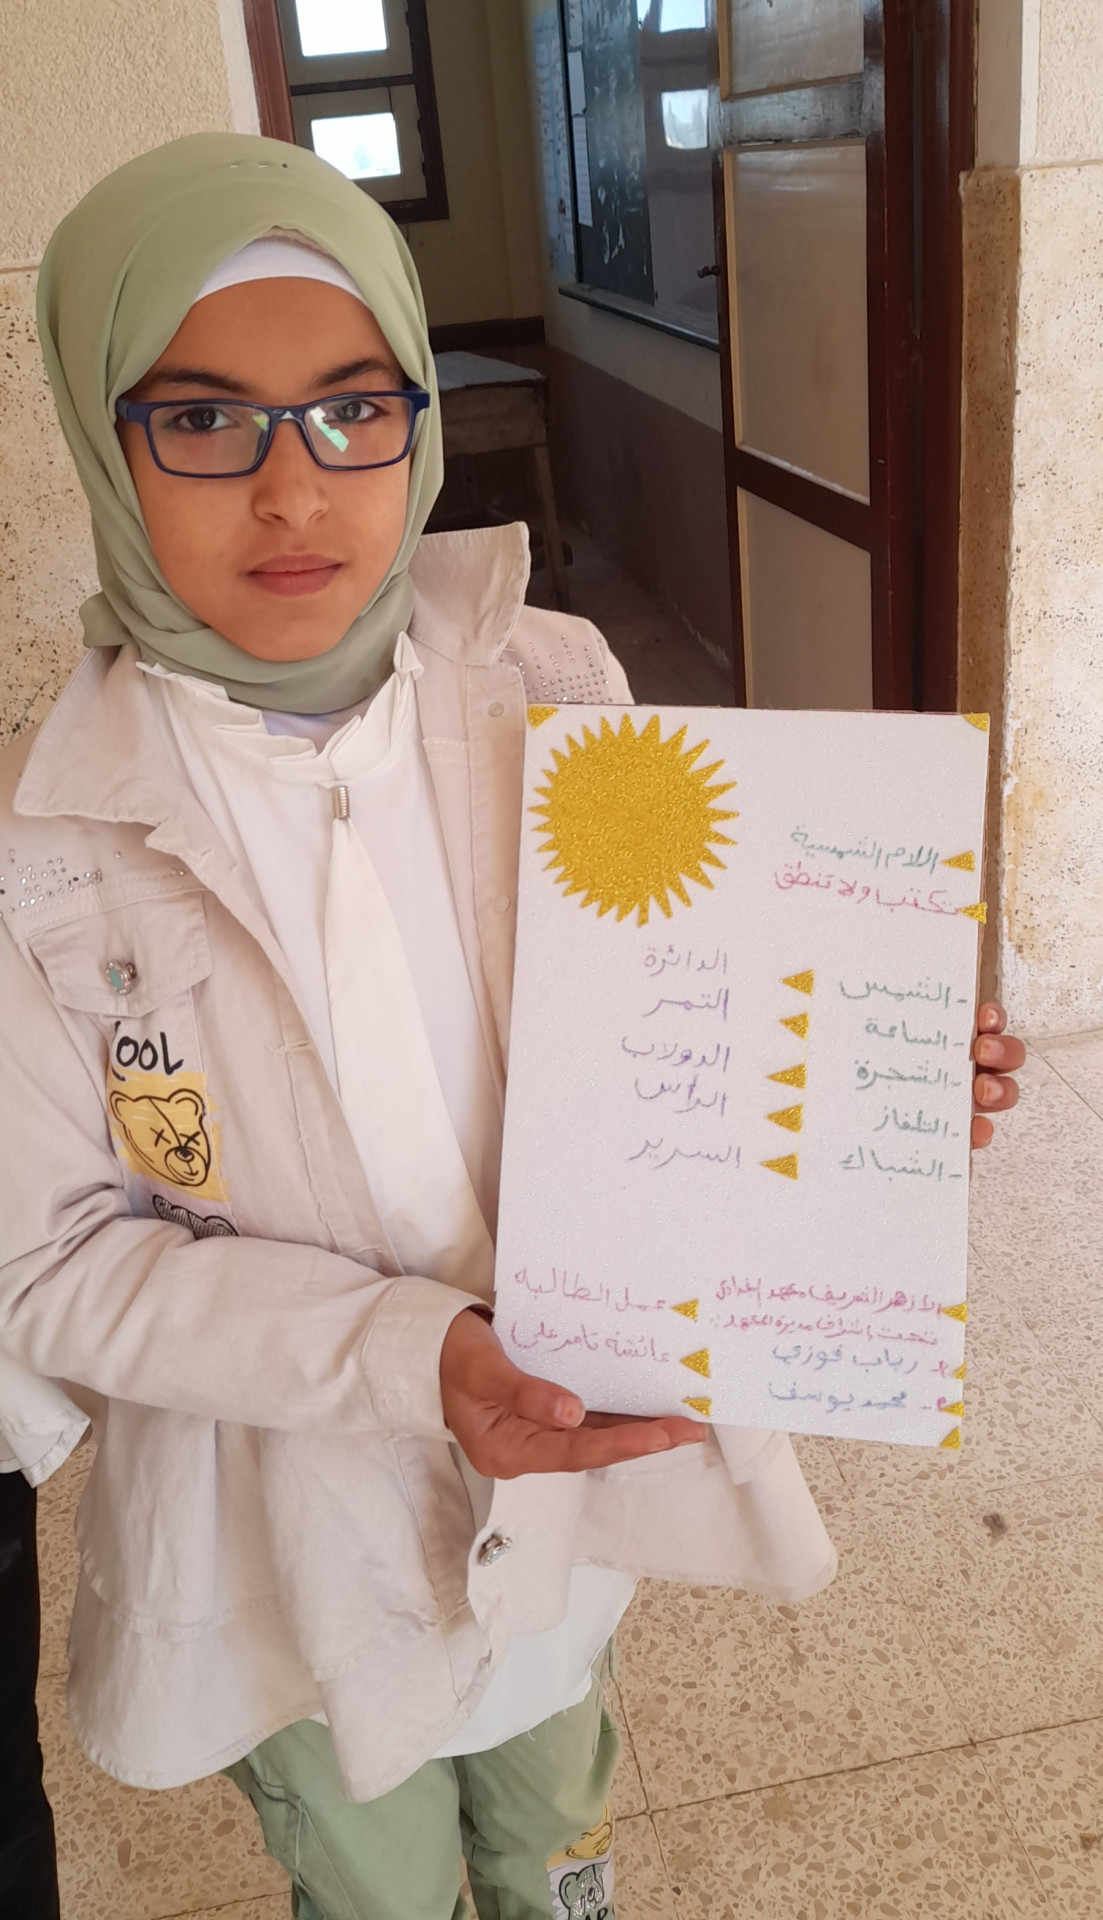 اللام الشمسية
تكتب ولا تنطق
- الشمس
- الساعة
- الشجرة
- التلفاز
- الشباك
الدائرة
التمر
الدولاب
الرأس
السرير
الأزهر الشريف معهد
تحت إشراف مديرة المعهد
رباب فوزي
محمد يوسف
عمل الطالبه
عائشه تامر علي
COOL